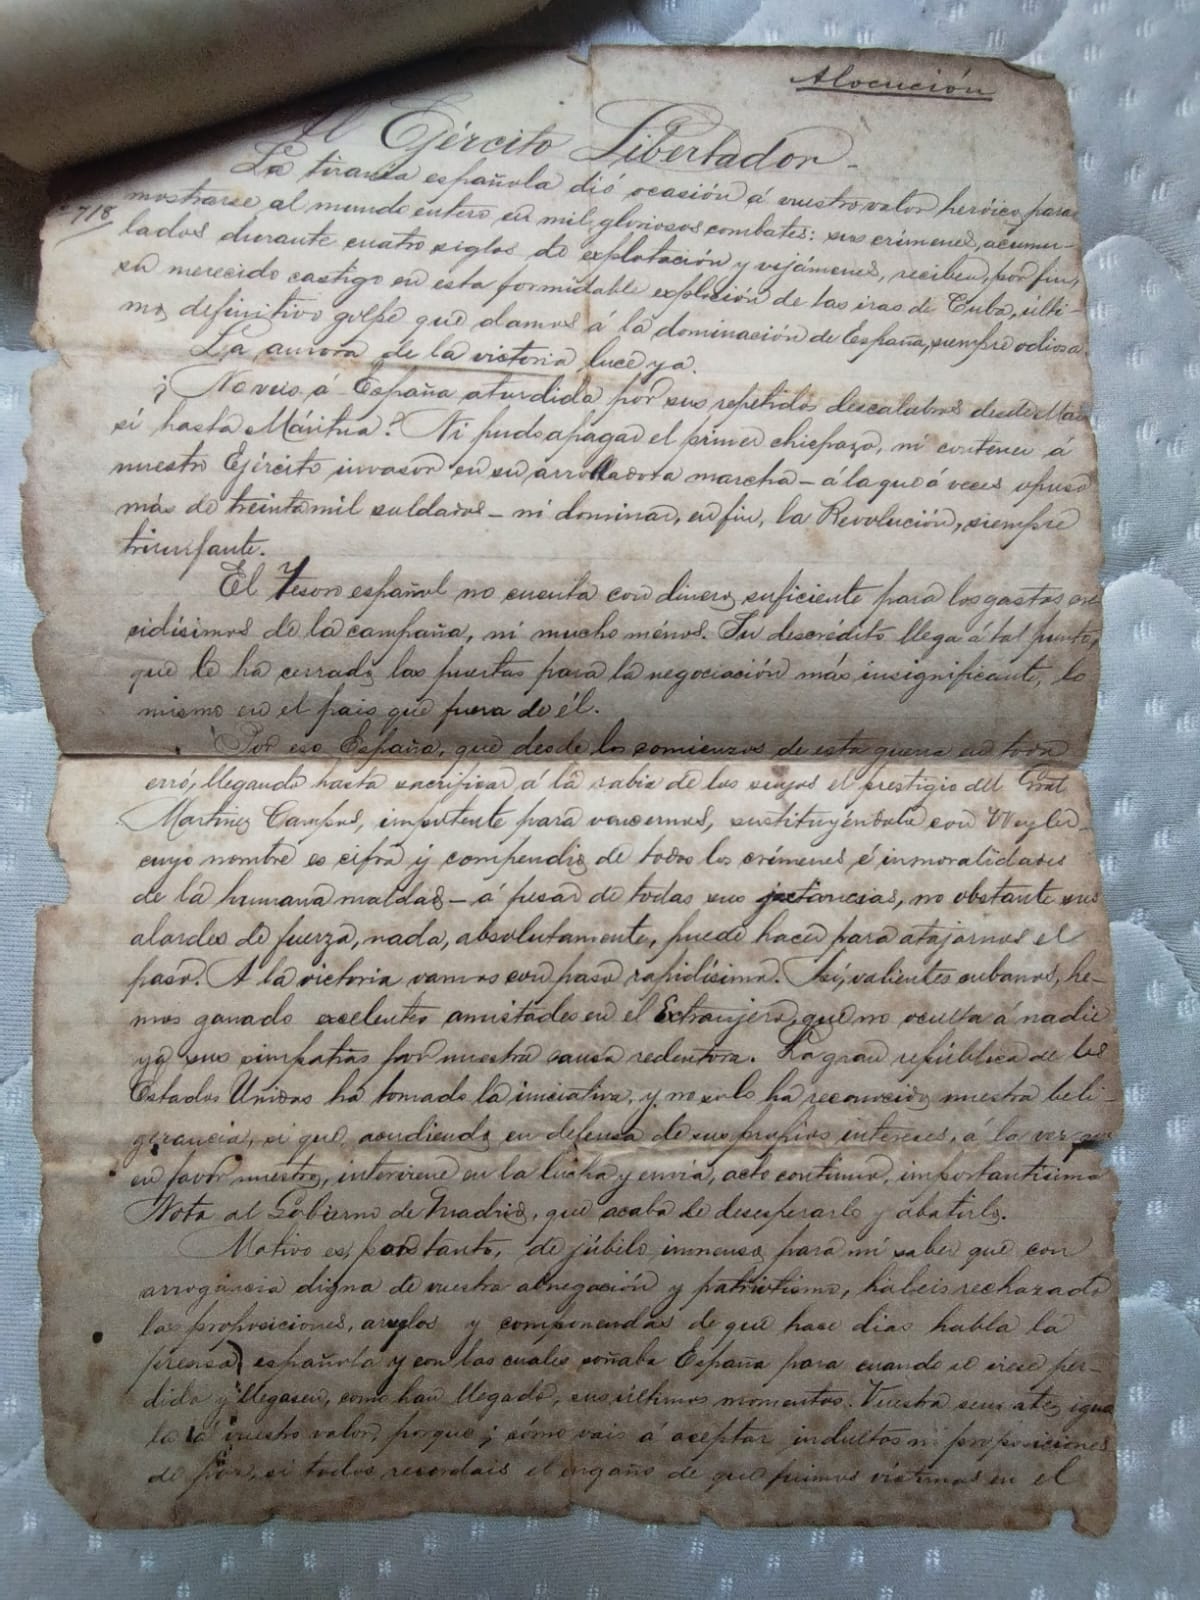 Alocución
Al Ejército Libertador.
La tiranía española dió ocasión á vuestro valor heróico para
718
mostrarse al mundo entero en mil gloriosos combates: sus crímenes, acumu-
lados durante cuatro siglos de explotación y vejámenes, reciben, por fin,
su merecido castigo en esta formidable explosión de las iras de Cuba, últi-
mo, definitivo golpe que damos á la dominación de España, siempre odiosa.
La aurora de la victoria luce ya.
¡No veis á España aturdida por sus repetidos descalabros desde Mai-
sí hasta Mántua? Ni pudo apagar el primer chispazo, ni contener á
nuestro Ejército invasor en su arrolladora marcha – á la que á veces opuso
más de treinta mil soldados – ni dominar, en fin, la Revolución, siempre
triunfante.
El Tesoro español no cuenta con dinero suficiente para los gastos cre-
cidísimos de la campaña, ni mucho ménos. Su descrédito llega á tal punto,
que le ha cerrado las puertas para la negociación más insignificante, lo
mismo en el pais que fuera de él.
Por eso España, que desde los comienzos de esta guerra en todo
erró, llegando hasta sacrificar á la rabia de los suyos el prestigio del Gral
Martinez Campos, impotente para vencernos, sustituyéndolo con Weyler –
cuyo nombre es cifra y compendio de todos los crímenes é inmoralidades
de la humana maldad – á pesar de todas sus jactancias, no obstante sus
alardes de fuerza, nada, absolutamente, puede hacer para atajarnos el
paso. A la victoria vamos con paso rapidísimo. Sí, valientes cubanos, he-
mos ganado excelentes amistades en el Extranjero, que no oculta á nadie
ya sus simpatias por nuestra causa redentora. La gran república de los
Estados Unidos ha tomado la iniciativa, y no solo ha reconocido nuestra beli-
gerancia, si que, acudiendo en defensa de sus propios intereses, á la vez que
en favor nuestro, interviene en la lucha y envía, acto continuo, importantísima
Nota al Gobierno de Madrid, que acaba de desesperarlo y abatirlo.
Motivo es, por tanto, de júbilo inmenso para mí saber que con
arrogancia digna de vuestra abnegación y patriotismo, habeis rechazado
las proposiciones, arreglos y componendas de que hace dias habla la
prensa española y con las cuales soñaba España para cuando se viese per-
dida y llegasen, como han llegado, sus últimos momentos. Vuestra sensatez igua
la á vuestro valor, porque ¡cómo vais á aceptar indultos ni proposiciones
de paz, si todos recordais el engaño de que fuimos víctimas en el